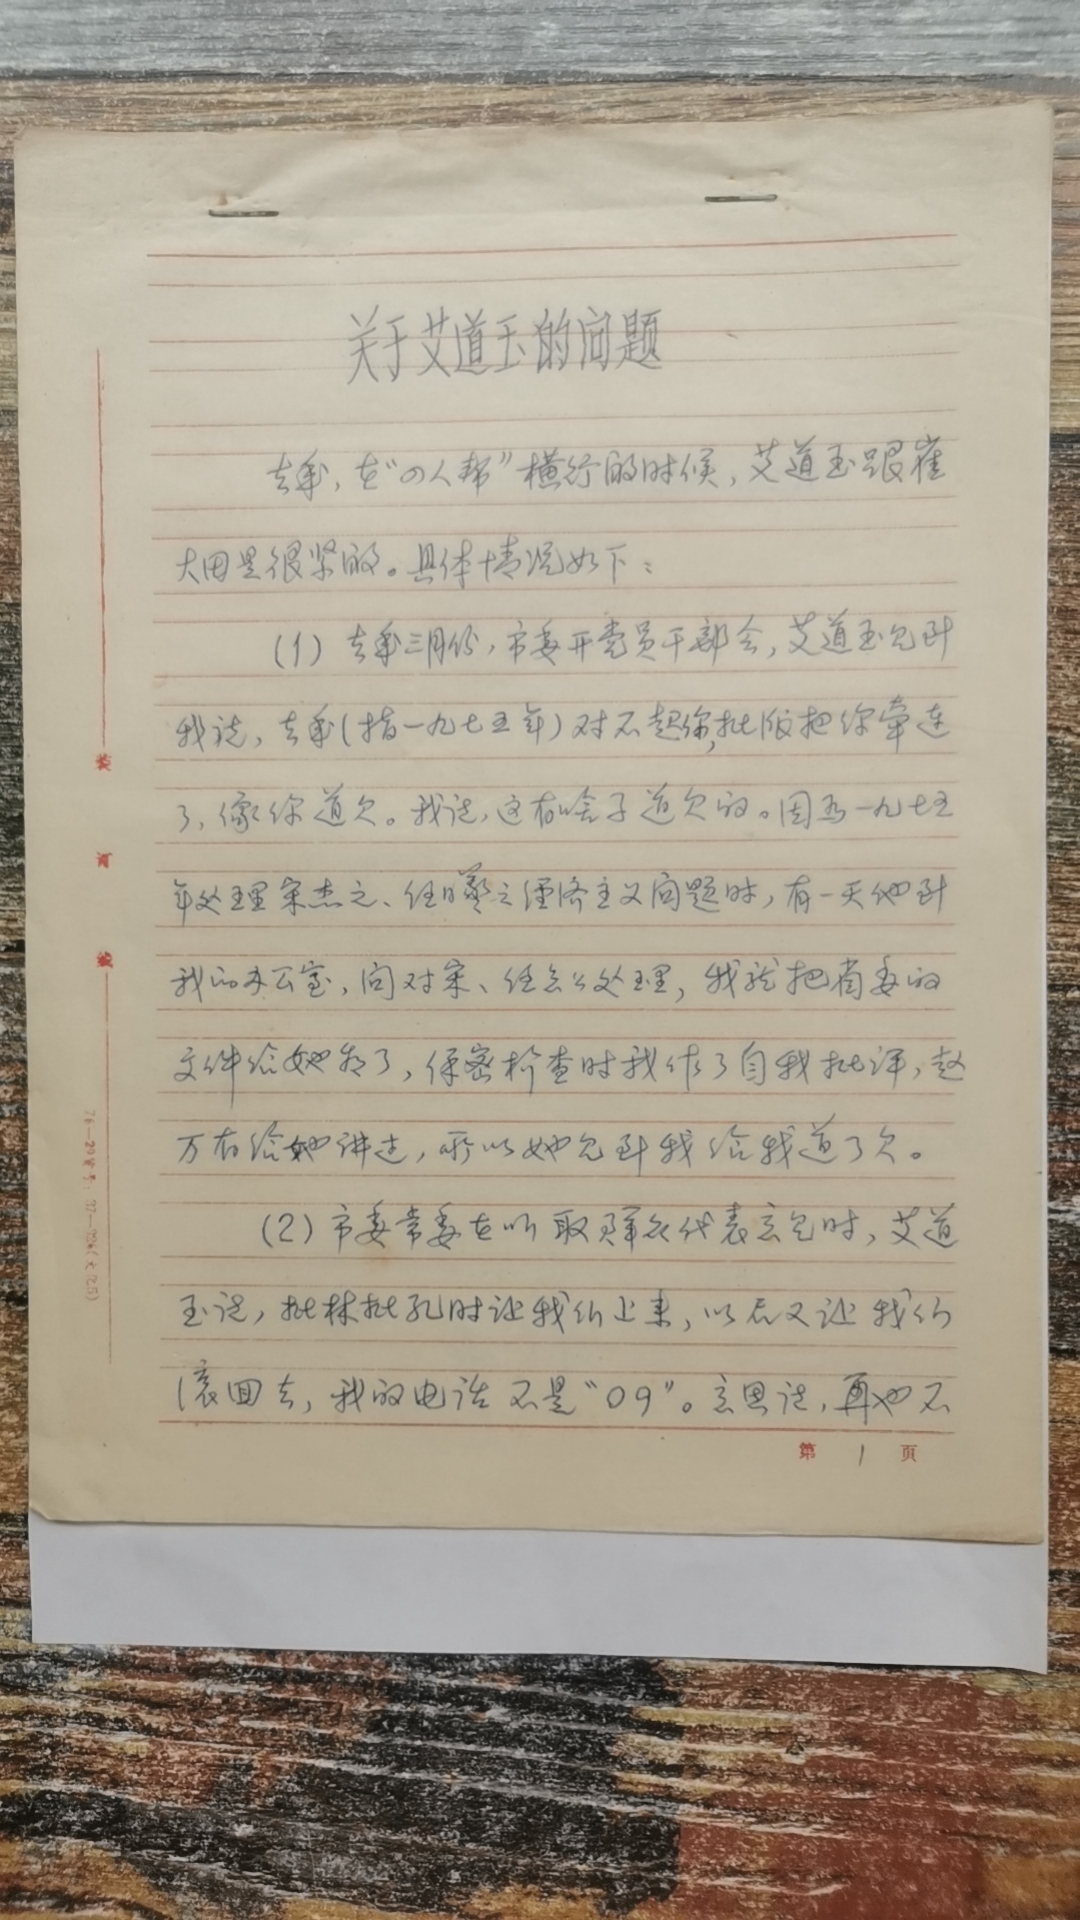 关于艾道玉的问题
去年，在“四人帮”横行的时候，艾道玉跟崔
大田是很紧的。具体情况如下：
(1) 去年三月份，市委开党员干部会，艾道玉见到
我说，去年(指一九七五年)对不起你，批版把你牵连
了，像你道欠。我说，这有啥子道欠的。因为一九七五
年处理宋杰之、任曦之经济主义问题时，有一天她到
我的办公室，问对宋、任怎么处理，我就把省委的
文件给她看了，保密检查时我作了自我批评，赵
万有给她讲过，所以她见到我给我道了欠。
(2) 市委常委在听取群众代表意见时，艾道
玉说，批林批孔时让我们上来，以后又让我们
滚回去，我的电话不是“09”。意思说，再也不
装
订
线
第 1 页